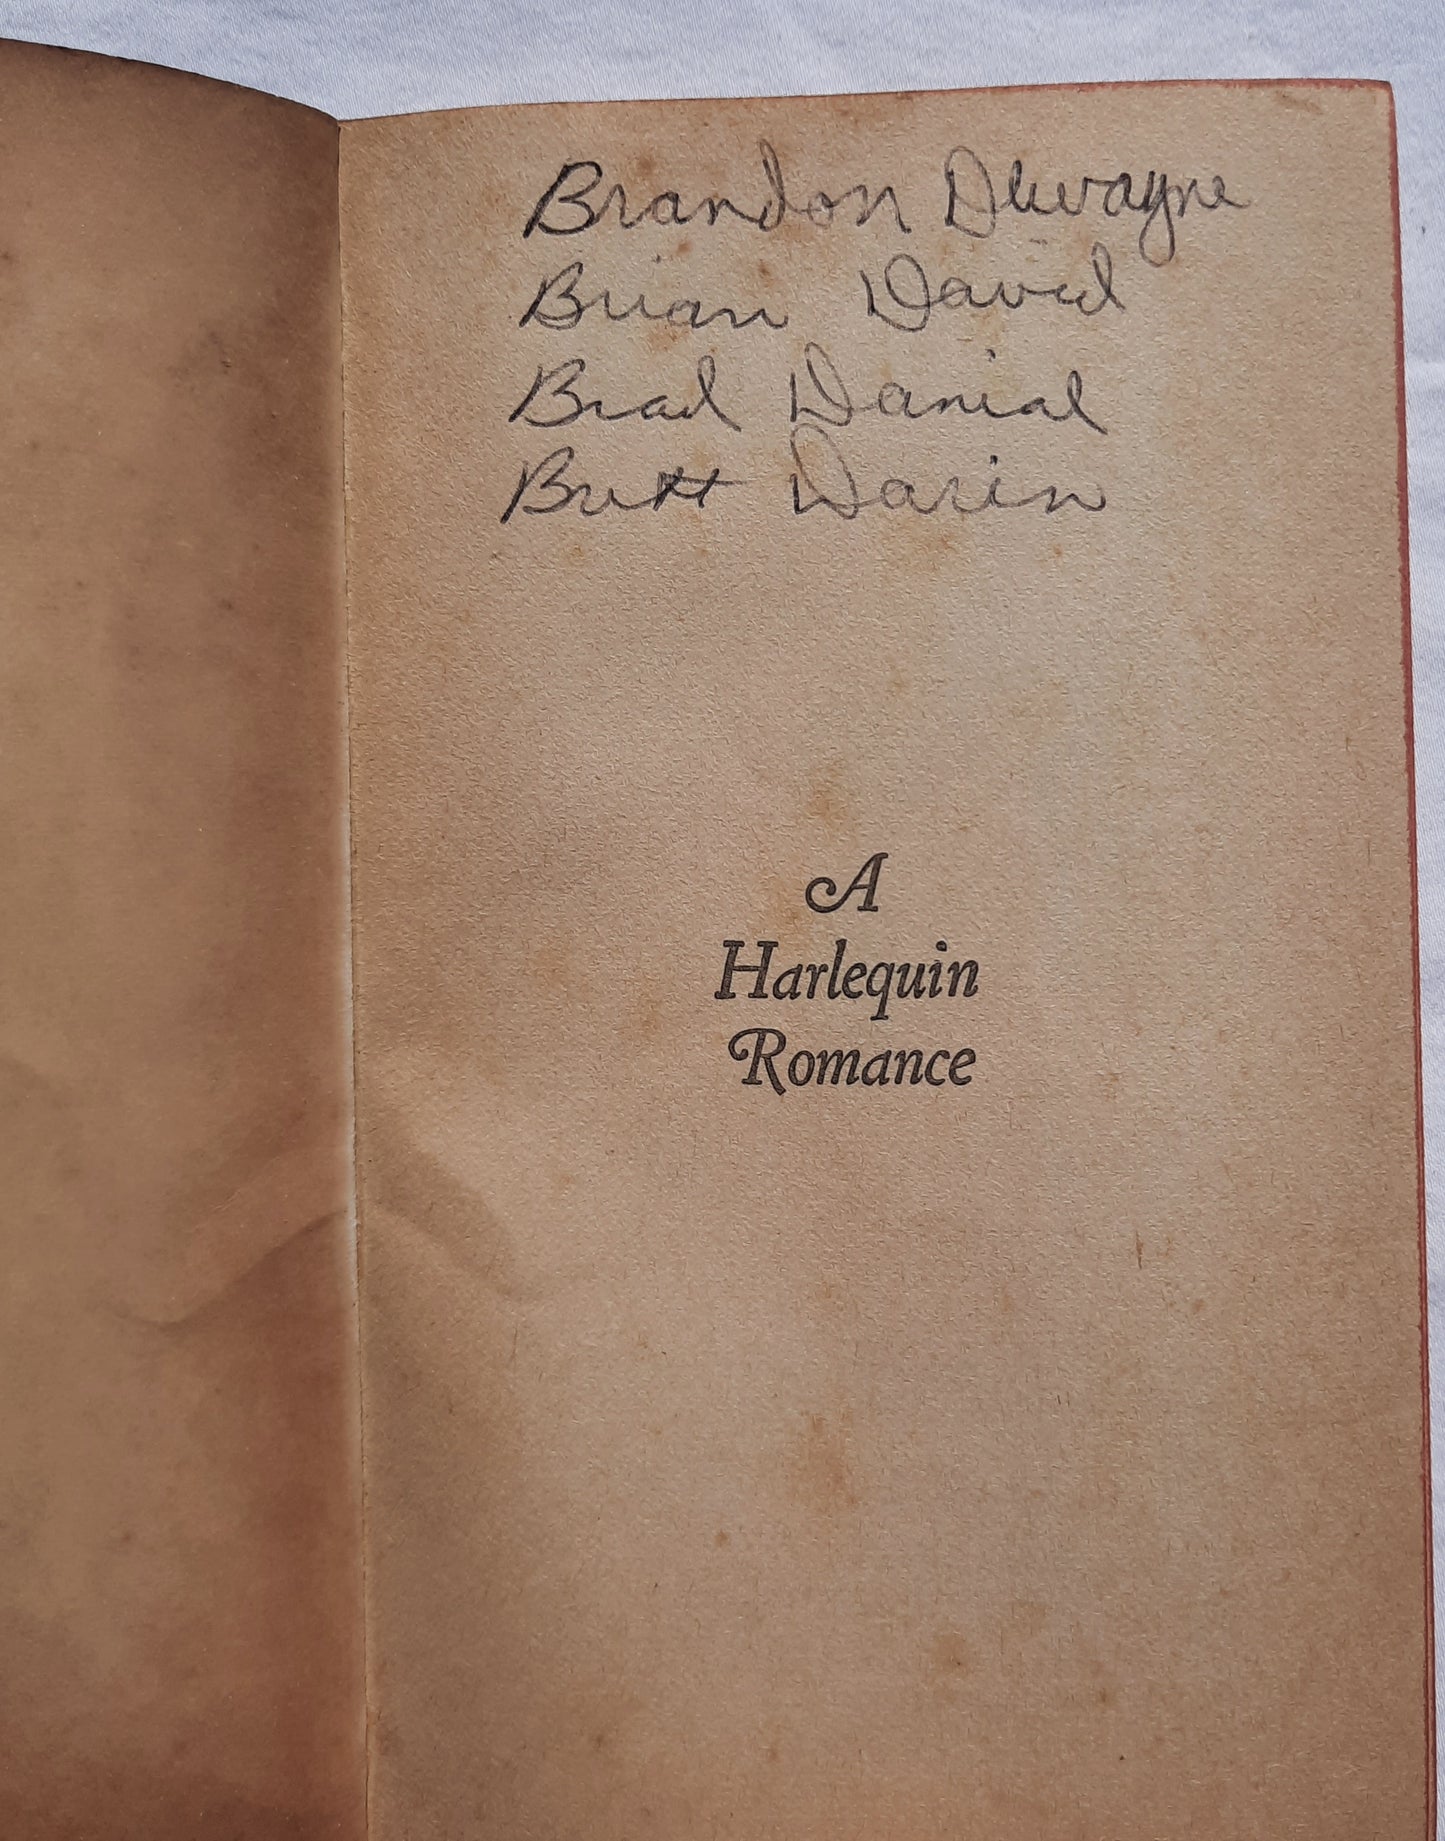 Brandon Dewayne
Brian David
Brad Danial
Brett Darin
A
Harlequin
Romance